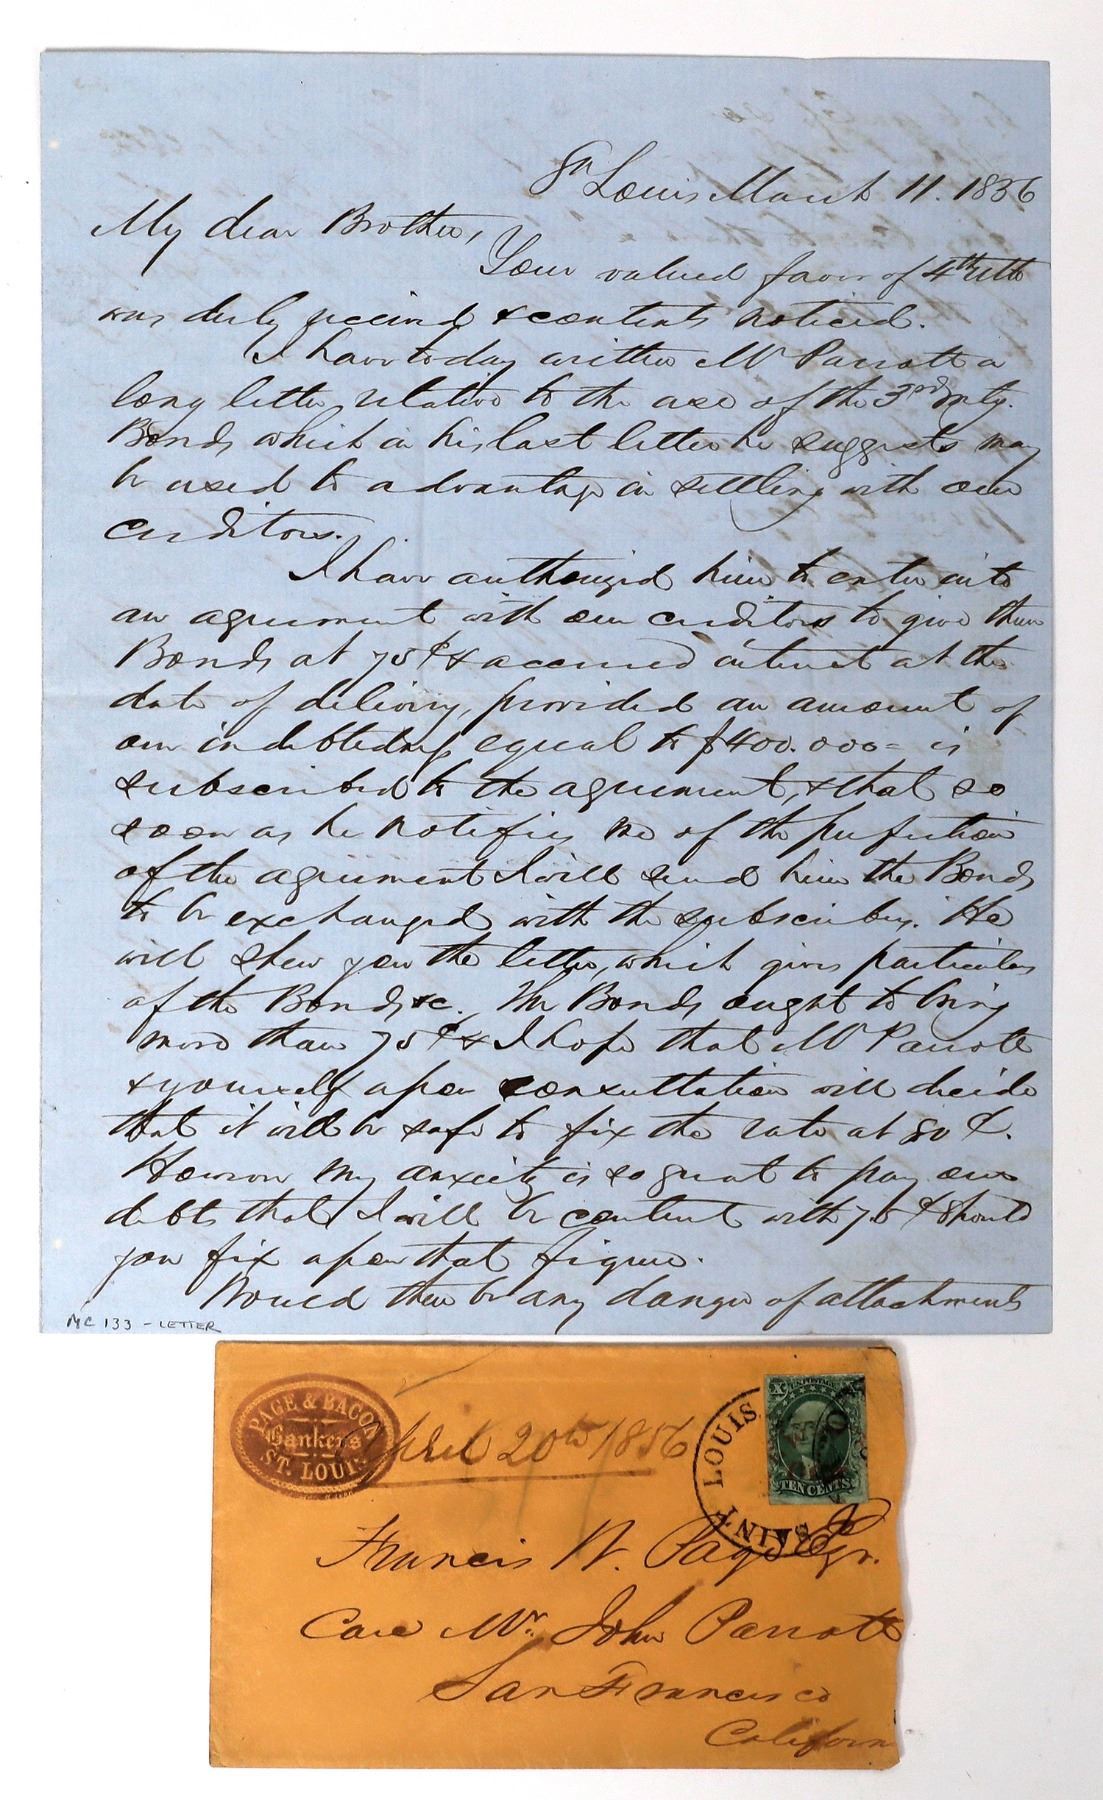 St Louis March 11. 1856
My dear Brother,
Your valued favor of 4th Ulto
was duly received & contents noticed.
I have to day written Mr Parrott a
long letter relative to the use of the 3rd Mtg.
Bonds which in his last letter he suggests may
be used to advantage in settling with our
creditors.
I have authorized him to enter into
an agreement with our creditors to give them
Bonds at 75 ¢ & accrued interest at the
date of delivery, provided an amount of
our indebtedness equal to $400.000= is
subscribed to the agreement, & that so
soon as he notifies me of the perfection
of the agreement I will send him the Bonds
to be exchanged with the subscribers. He
will shew you the letter, which gives particulars
of the Bonds &c. The Bonds ought to bring
more than 75 ¢ & I hope that Mr Parrott
& yourself upon consultation will decide
that it will be safe to fix the rate at 80 ¢.
However my anxiety is so great to pay our
debts that I will be content with 75 ¢ should
you fix upon that figure.
Would there be any danger of attachments
MC 133 - LETTER
PAGE & BACON
Bankers
ST. LOUIS
April 20th 1856
SAINT LOUIS
X U.S. POSTAGE X
TEN CENTS
Francis W. Page Esqr.
Care Mr. John Parrott
San Francisco
Californ